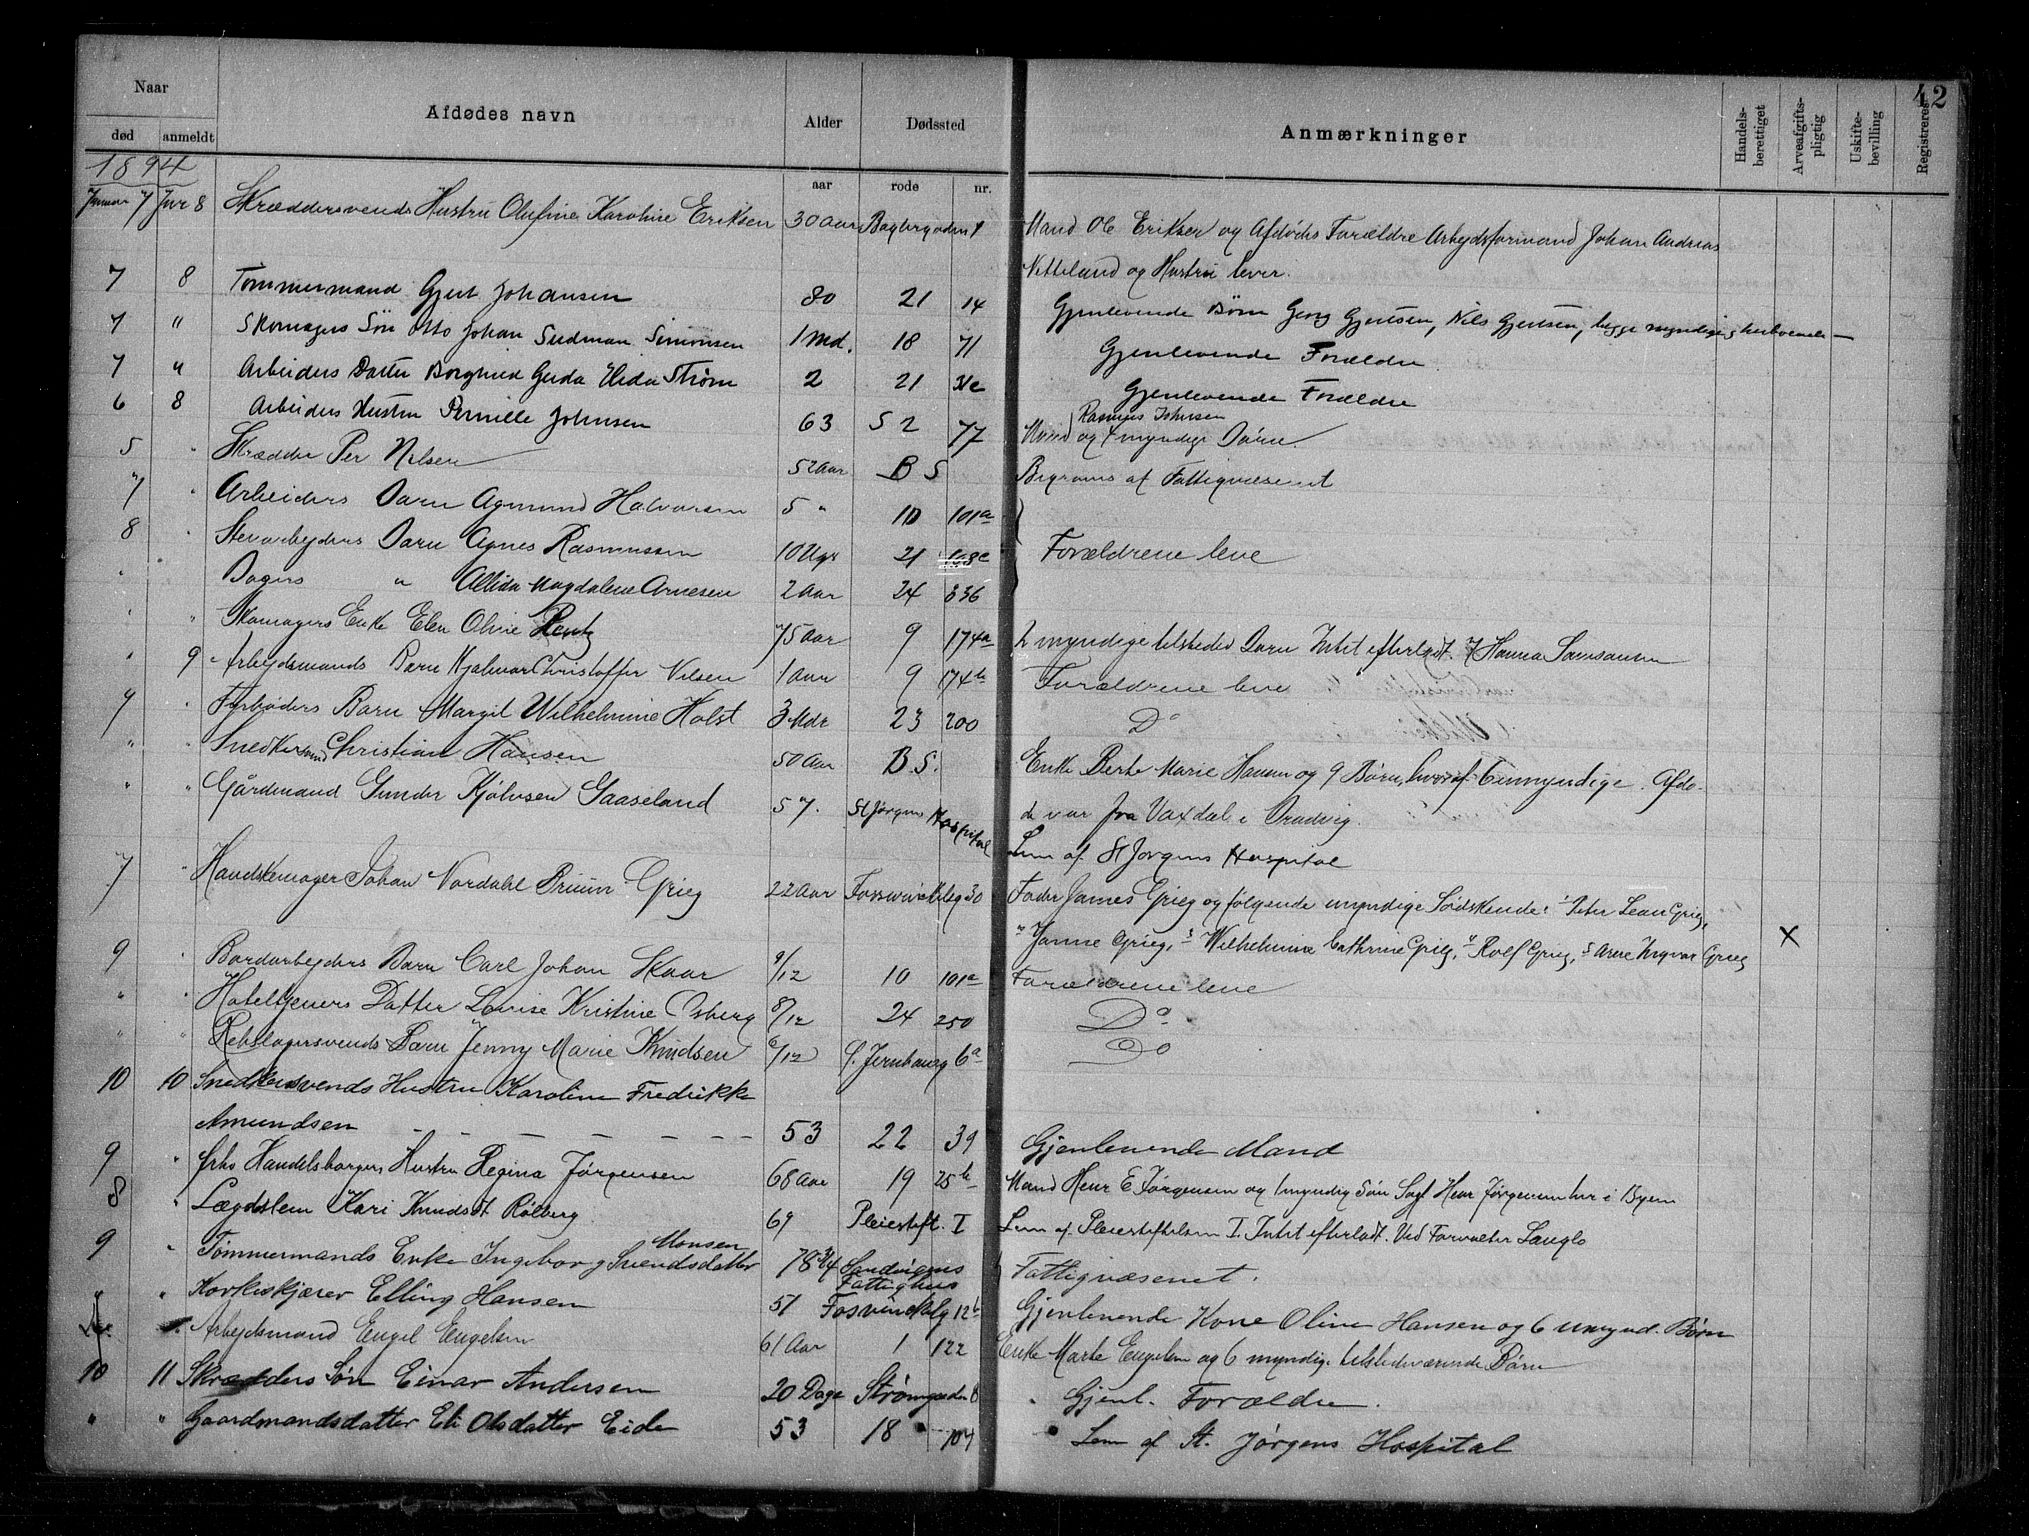 42
Naar
Afdødes navn
Alder
Dødssted
Anmærkninger
Handels-berettiget
Arveafgifts-pligtig
Uskifte-bevilling
Registreres
død anmeldt aar rode nr.
1894
Januar 7 Jnr 8 Skræddersvends Hustru Olufine Karoline Eriksen 30 Aar Mand Ole Eriksen og Afdødes Forældre Arbejdsformand Johan Andreas
Netteland og Hustru lever.
7 8 Tømmermand Gjert Johansen 80 21 14 Gjenlevende Børn Georg Gjertsen, Nils Gjertsen, begge myndige
7 " Skomagers Søn Otto Johan Sudman Simonsen 1 Md. 18 71 Gjenlevende Forældre
7 " Arbeiders Datter Borghild Gerda Hida Strøm 2 21 Gjenlevende Forældre
Rasmus Johnsen
6 8 Arbeiders Hustru Pernille Johnsen 63 S 2 77 Mand og 4 myndige Børn
5 " Skrædder Per Nilsen 52 Aar B S Begraves af Fattigvæsenet
7 " Arbeiders Barn Agmund Halvorsen 5 " 10 101a
8 " Barn Agnes Rasmussen 10 Uger 21 Forældrene leve
" Bagers " Allida Magdalene Arnesen 2 Aar 24 336
" " Skomagers Enke Elen Oline Rentz 75 Aar 9 174a 2 myndige tilstede Børn Intet efterladt. Hanna
" 9 Arbejdsmands Barn Hjalmar Christoffer Nilsen 1 Aar 9 174b Forældrene leve
7 " Fyrbøders Barn Margit Wilhelmine Holst 3 Mdr 23 200 Do
" " Snedkersvend Christian Hansen 50 Aar B.S. Enke Berte Marie Hansen og 9 Børn, hvoraf 6 umyndige. Afdø-
" " Gårdmand Gunder Kjølvsen Gaaseland 57. St Jørgens Hospital de var fra Vaxdal i Bradvig.
Lem af St Jørgens Hospital
7 " Handskemager Johan Nordahl Bruun Grieg 22 Aar 30 Fader James Grieg og følgende myndige Sødskende: 1 Peter Lean Grieg,
2 Janne Grieg, 3 Wilhelmine Cathrine Grieg, 4 Rolf Grieg, 5 Arne Ingvar Grieg X
9 " Bordarbejders Barn Carl Johan Skaar 9/12 10 101a Forældrene leve
" " Hoteltjeners Datter Lovise Kristine Osberg 8/12 24 250 Do
" " Rebslagersvends Barn Jenny Marie Knudsen 6/12 6a Do
10 10 Snedkersvends Hustru Karoline Fredrikke
Amundsen 53 22 39 Gjenlevende Mand
9 " Handelsborgers Hustru Regina Jørgensen 68 Aar 19 25b Mand Henr E Jørgensen og 1 myndig Søn Henr Jørgensen her i Byen
8 " Lægdslem Kari Knudsdt Rølberg 69 Pleiestift. I Lem af Pleiestiftelsen I. Intet efterladt. Ved Forvalter Langlo
Monsen
9 " Tømmermands Enke Ingeborg Svendsdatter 78 3/4 Sandvigens Fattighus Fattigvæsenet.
" " Korkeskjærer Elling Hansen 51 12b Gjenlevende Kone Oline Hansen og 6 umynd. Børn
Arbejdsmand Engel Engelsen 61 Aar 1 122 Enke Marte Engelsen og 6 myndige tilstedeværende Børn
10 11 Skrædders Søn Einar Andersen 20 Dage Strømgaden 8 Gjenl. Forældre.
" " Gaardmandsdatter Eli Olsdatter Eide 53 18 107 Lem af St. Jørgens Hospital